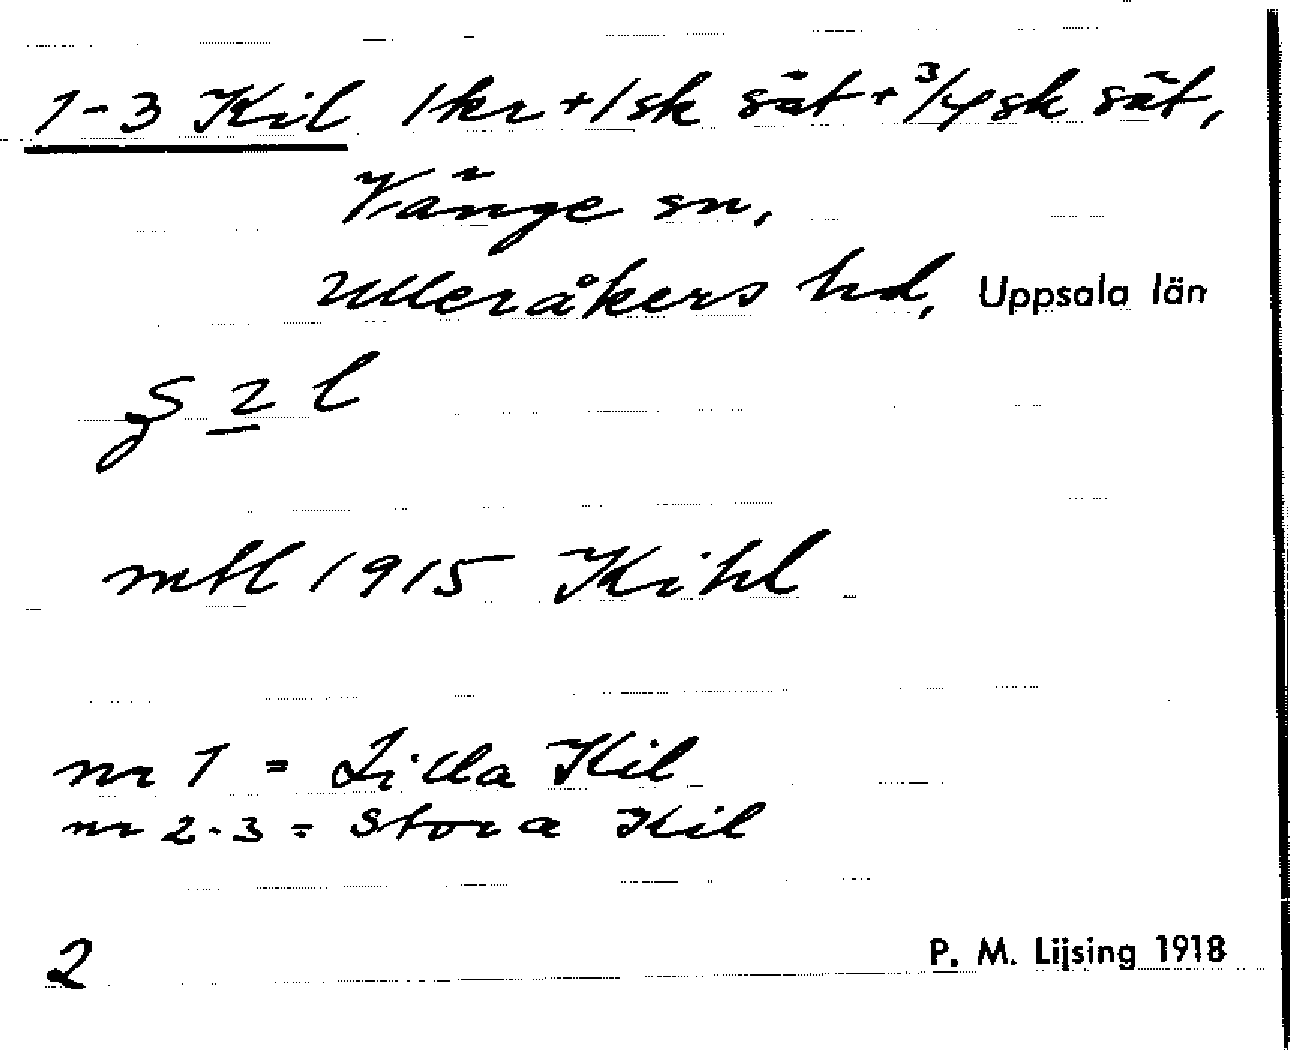 1-3 Kil 1 kr + 1 sk sät + 3/4 sk sät,
Vänge sn,
Ulleråkers hd, Uppsala län
§ 2 l
mtl 1915 Kihl
nr 1 = Lilla Kil
nr 2-3 = Stora Kil
2
P. M. Lijsing 1918